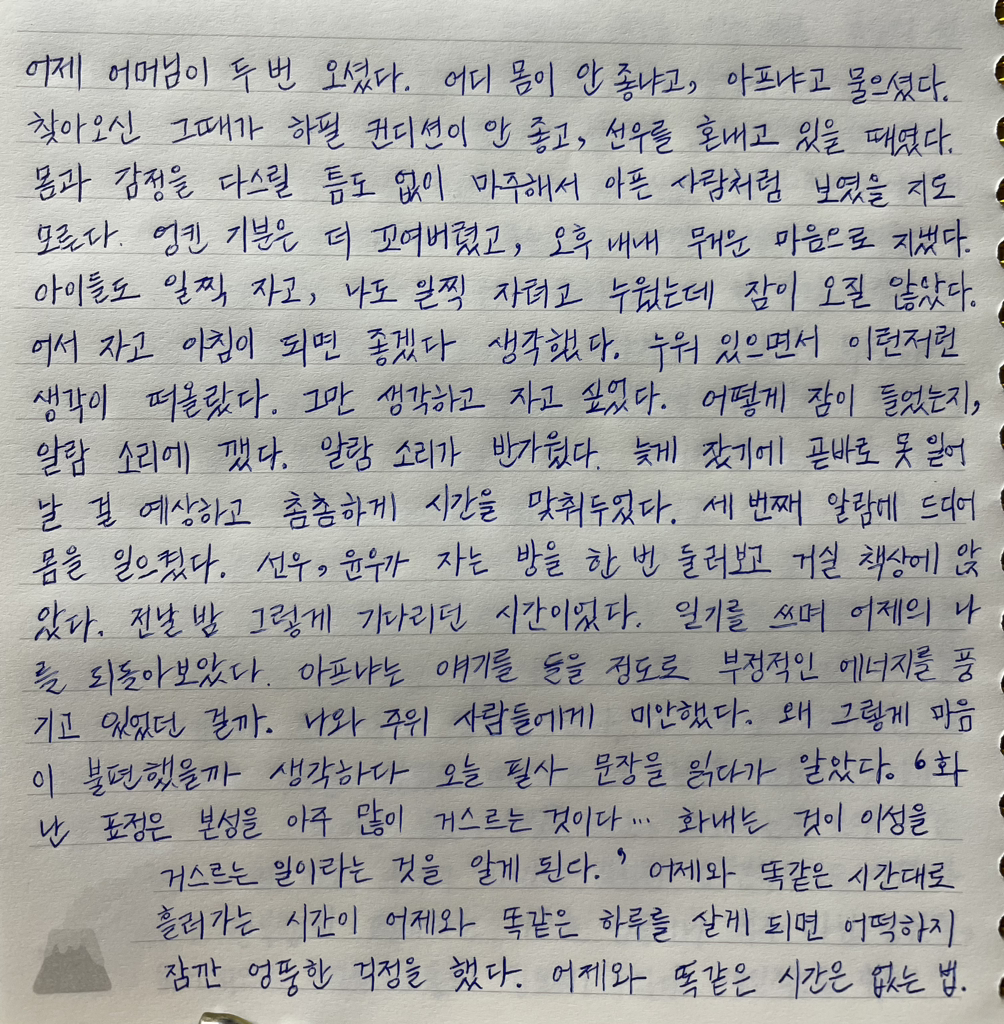 어제 어머님이 두 번 오셨다. 어디 몸이 안 좋냐고, 아프냐고 물으셨다.
찾아오신 그때가 하필 컨디션이 안 좋고, 선우를 혼내고 있을 때였다.
몸과 감정을 다스릴 틈도 없이 마주해서 아픈 사람처럼 보였을 지도
모른다. 엉킨 기분은 더 꼬여버렸고, 오후 내내 무거운 마음으로 지냈다.
아이들도 일찍 자고, 나도 일찍 자려고 누웠는데 잠이 오질 않았다.
어서 자고 아침이 되면 좋겠다 생각했다. 누워 있으면서 이런저런
생각이 떠올랐다. 그만 생각하고 자고 싶었다. 어떻게 잠이 들었는지,
알람 소리에 깼다. 알람 소리가 반가웠다. 늦게 잤기에 곧바로 못 일어
날 걸 예상하고 촘촘하게 시간을 맞춰두었다. 세 번째 알람에 드디어
몸을 일으켰다. 선우, 윤우가 자는 방을 한 번 둘러보고 거실 책상에 앉
았다. 전날 밤 그렇게 기다리던 시간이었다. 일기를 쓰며 어제의 나
를 되돌아보았다. 아프냐는 얘기를 들을 정도로 부정적인 에너지를 풍
기고 있었던 걸까. 나와 주위 사람들에게 미안했다. 왜 그렇게 마음
이 불편했을까 생각하다 오늘 필사 문장을 읽다가 알았다. ‘화
난 표정은 본성을 아주 많이 거스르는 것이다… 화내는 것이 이성을
거스르는 일이라는 것을 알게 된다.’ 어제와 똑같은 시간대로
흘러가는 시간이 어제와 똑같은 하루를 살게 되면 어떡하지
잠깐 엉뚱한 걱정을 했다. 어제와 똑같은 시간은 없는 법.